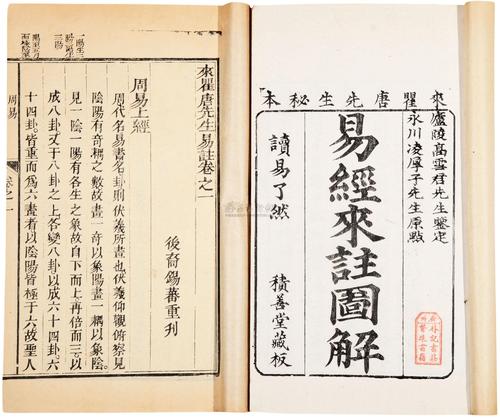 來瞿唐先生秘本
廬陵高雪君先生鑒定
永川凌厚子先生原點
易經來註圖解
讀易了然
積善堂藏板
來瞿唐先生易註卷之一
後裔錫蕃重刊
周易上經
周代名易書名卦則伏羲所畫也伏羲仰觀俯察見
陰陽有奇耦之數故畫一奇以象陽畫一耦以象陰。
見一陰一陽有各生之象故自下而上再倍而三以
成八卦又于八卦之上各變八卦以成六
十四卦。皆重而爲六畫者以陰陽皆極于六故聖人
周易
卷之一